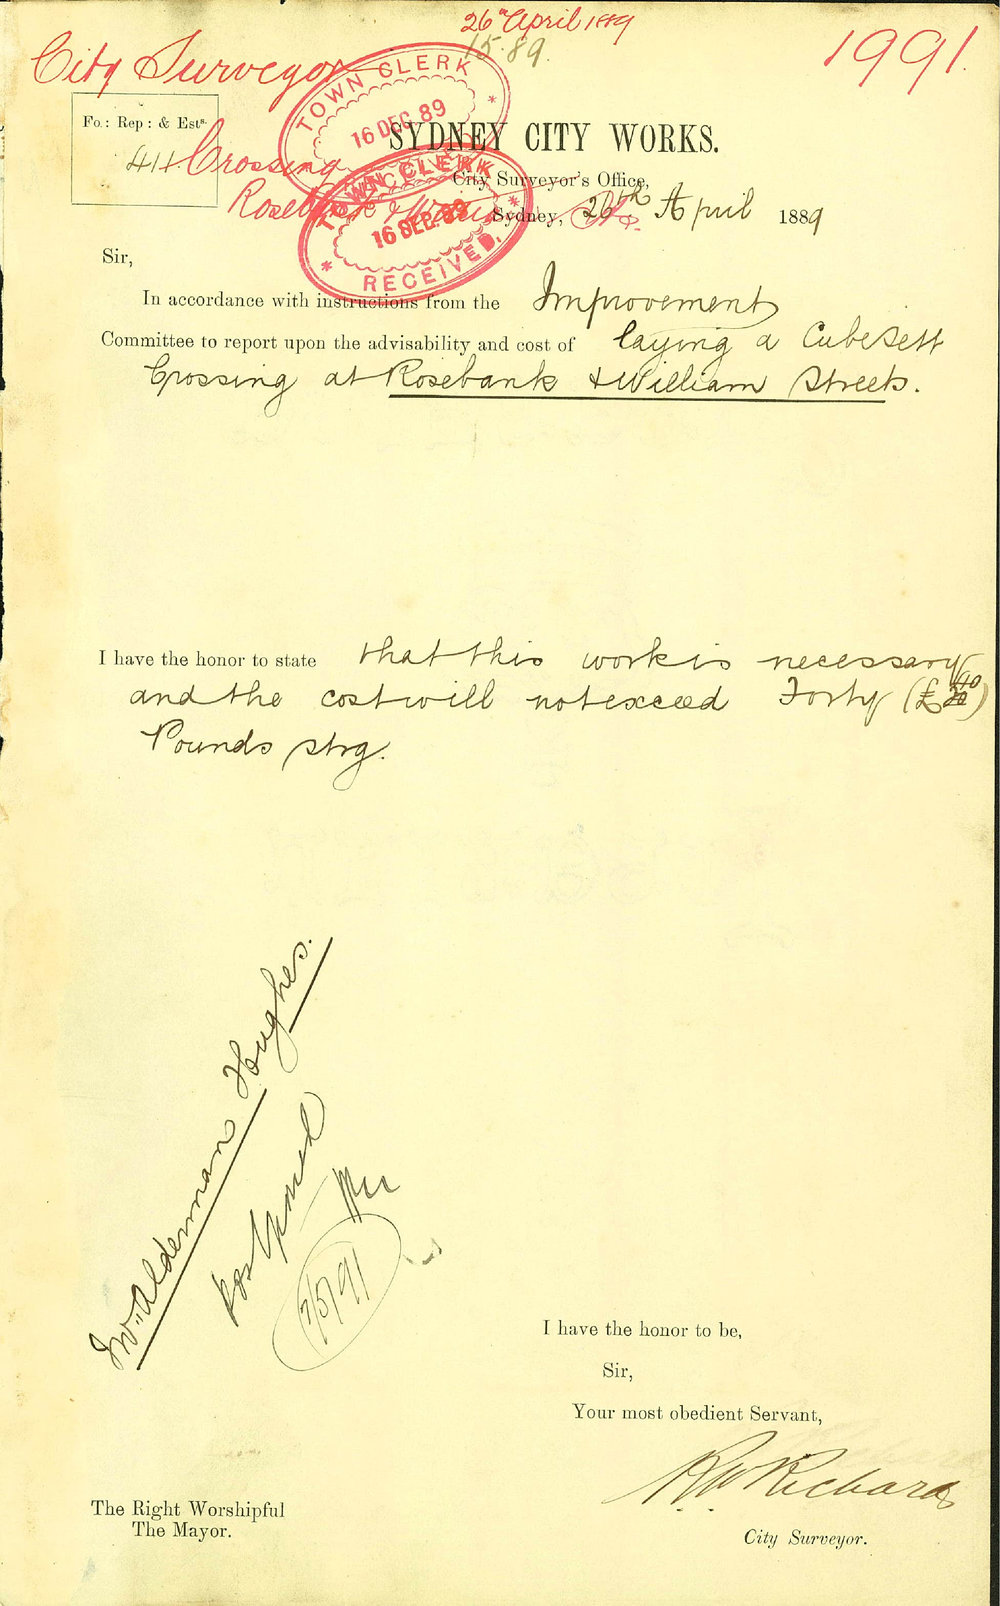 26th April 1889
15.89.
City Surveyor
1991.
TOWN CLERK
16 DEC. 89
Fo.: Rep: & Ests.
411
Crossing
Rosebank & William
SYDNEY CITY WORKS.
City Surveyor's Office,
TOWN CLERK
16 SEP. 89
RECEIVED.
Sydney, 26th April 1889
Sir,
In accordance with instructions from the Improvement
Committee to report upon the advisability and cost of laying a Cube Sett
Crossing at Rosebank & William Streets.
I have the honor to state that this work is necessary
and the cost will not exceed Forty (£40)
Pounds strg.
Mr. Alderman Hughes.
Postponed
7/5/91
I have the honor to be,
Sir,
Your most obedient Servant,
RW Richards
City Surveyor.
The Right Worshipful
The Mayor.